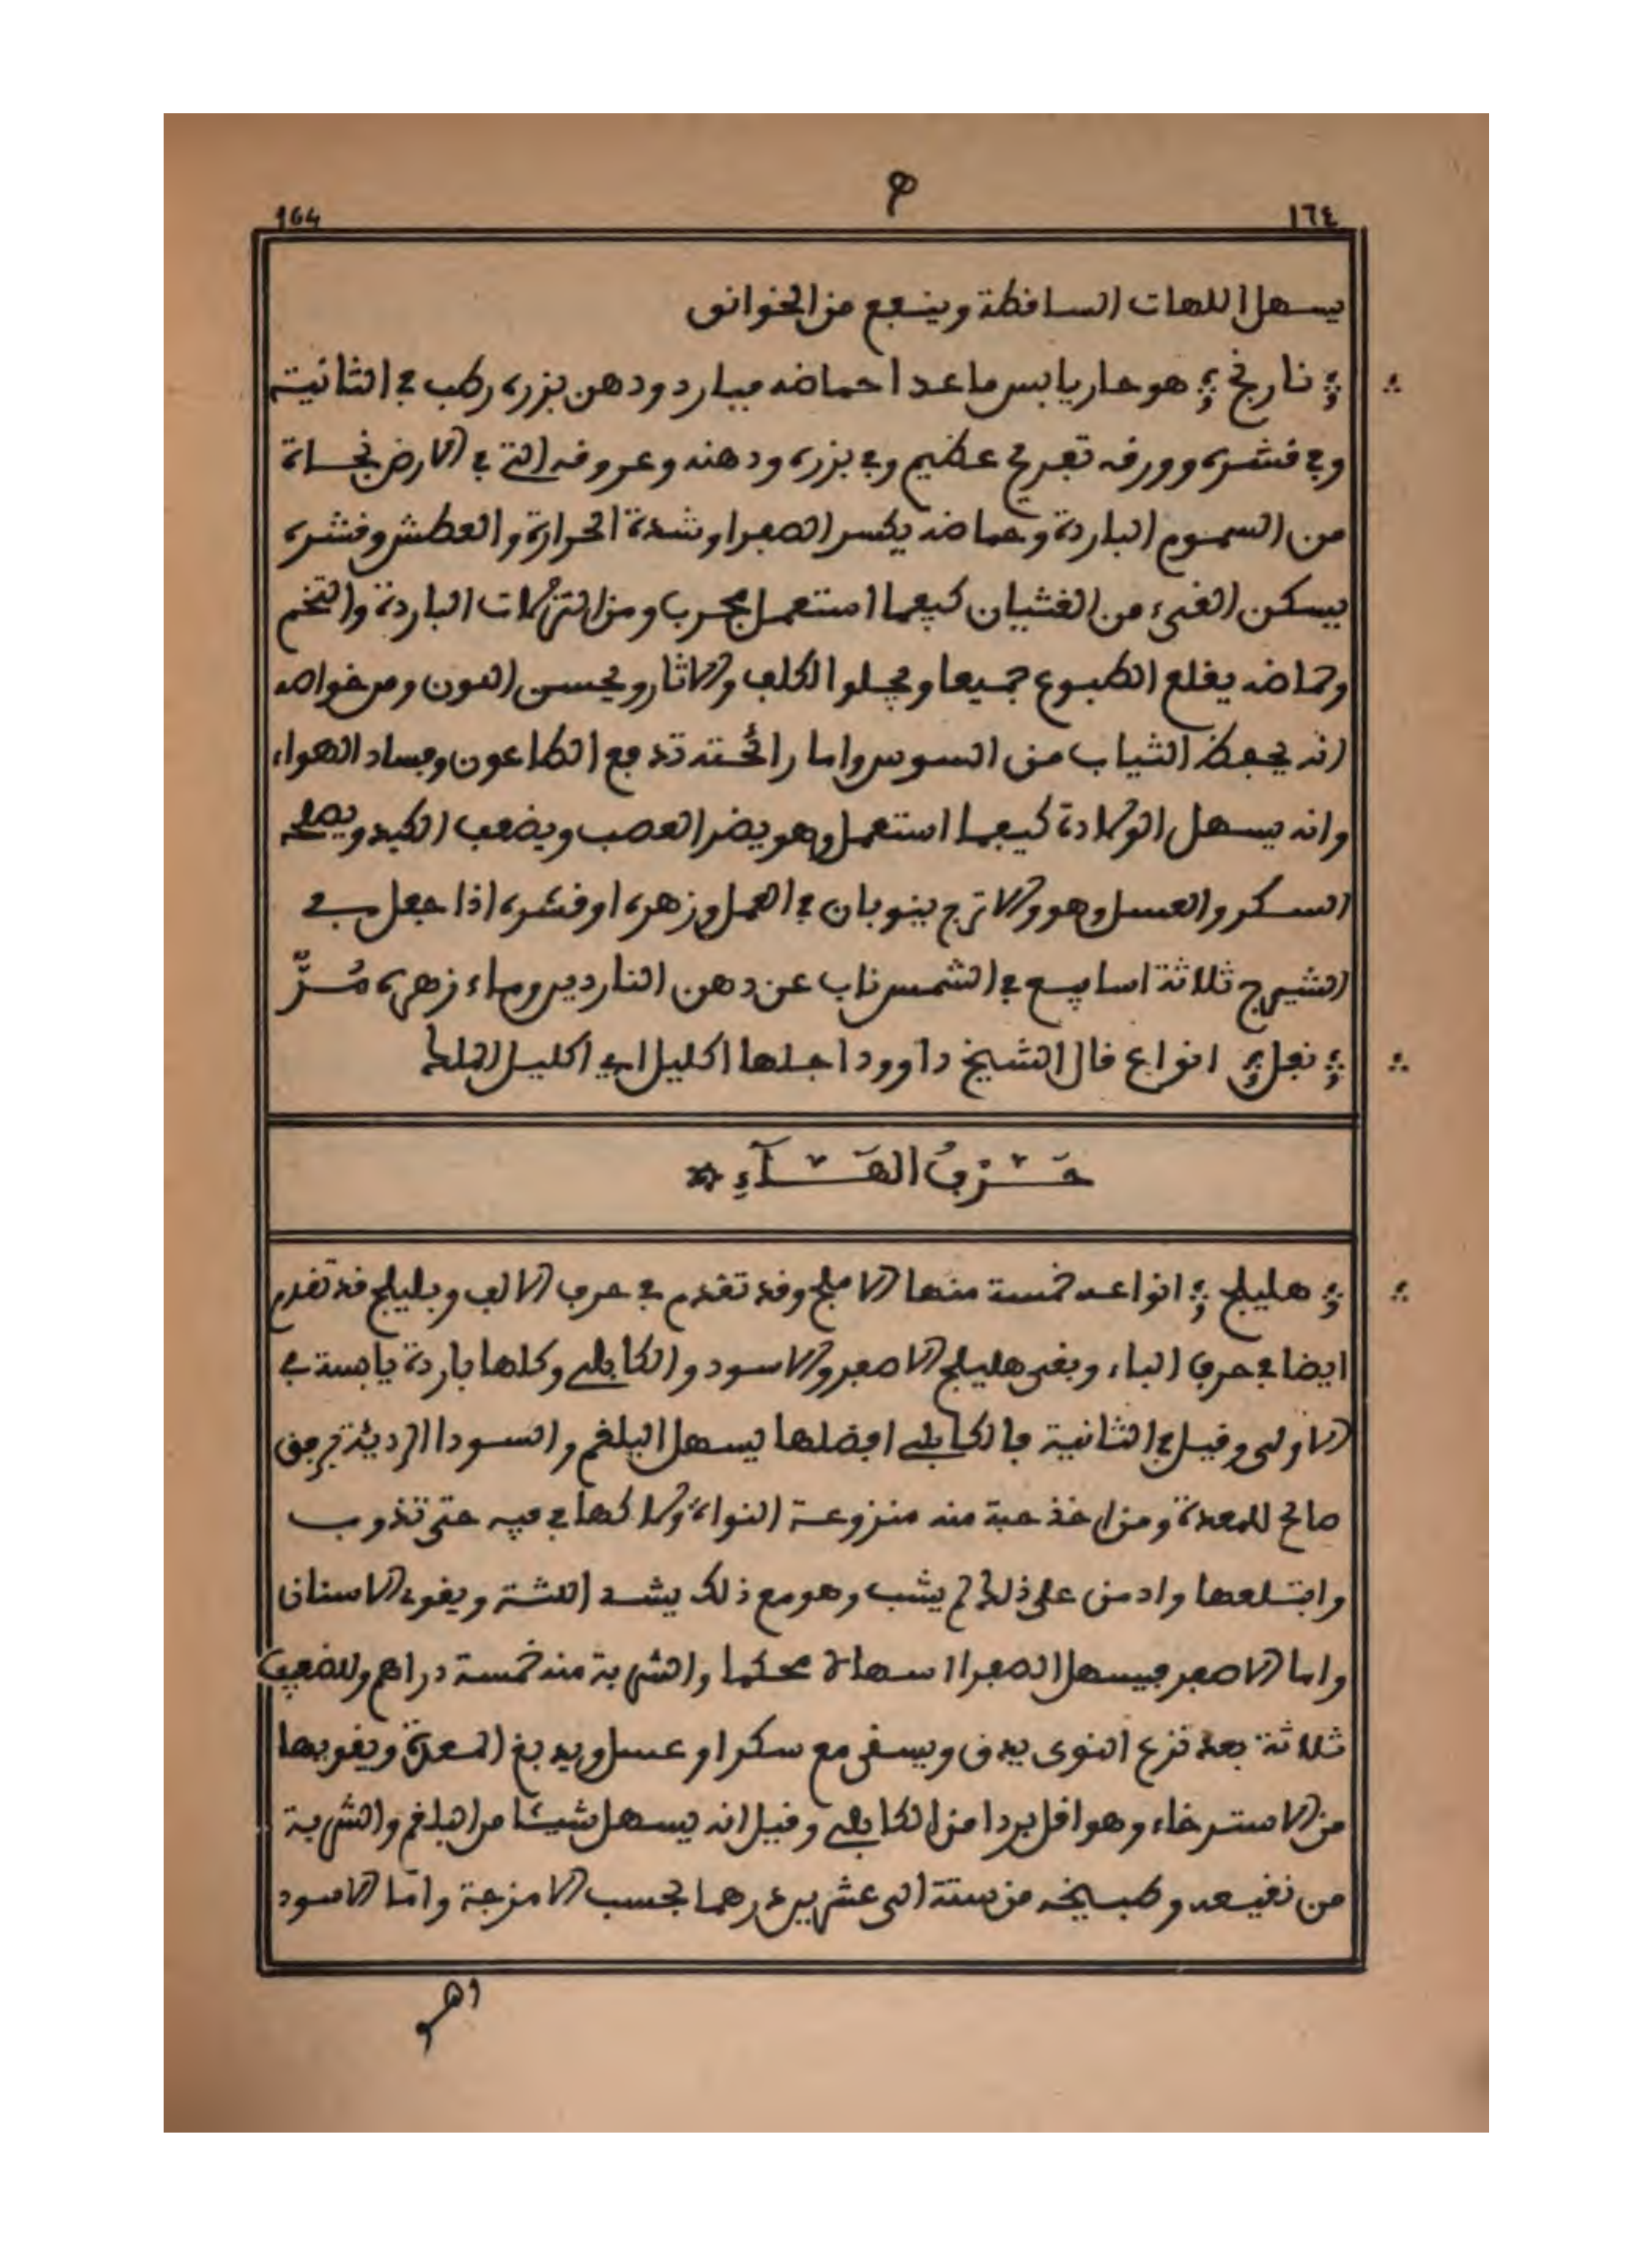 ١٦٤ ه 164
يسهل اللهات الساقطة وينفع من الخوانق
نارنج هو حار يابس ماعدا حماضه فبارد ودهن بزره رطب في الثانية
وفي قشره وورقه تفريح عظيم وفي بزره ودهنه وعروقه التي في الارض نجاة
من السموم الباردة وحماضه يكسر الصفرا وشدة الحرارة والعطش وقشره
يسكن القيء من الغثيان كيفما استعمل مجرب ومن النزلات الباردة والتخم
وحماضه يقلع الطبوع جميعا ويجلو الكلف والاثار ويحسن اللون ومن خواصه
انه يحفظ الثياب من السوس واما رائحته تدفع الطاعون وفساد الهواء
وانه يسهل الولادة كيفما استعمل وهو يضر العصب ويضعف الكبد ويصلحه
السكر والعسل وهو والاترج ينوبان في العمل وزهره او قشره اذا جعل في
الشيرج ثلاثة اسابيع في الشمس ناب عن دهن الناردين وماء زهره مُرٌّ
نفل انواع قال الشيخ داوود اجلها اكليل اي اكليل الملك
حَرْفُ الهَآءِ
هليلج انواعه خمسة منها الاملج وقد تقدم في حرف الالف وبليلج قد تقدم
ايضا في حرف الباء وبقي هليلج الاصفر والاسود والكابلي وكلها باردة يابسة في
الاولى وقيل في الثانية فالكابلي افضلها يسهل البلغم والسودا الرديئة برفق
صالح للمعدة ومن اخذ حبة منه منزوعة النواة ولاكها في فيه حتى تذوب
وابتلعها وادمن على ذلك لم يشب وهو مع ذلك يشد اللثة ويقوي الاسنان
واما الاصفر فيسهل الصفرا اسهالا محكما والشربة منه خمسة دراهم وللضعيف
ثلاثة بعد نزع النوى يدق ويسقى مع سكر او عسل ويدبغ المعدة ويقويها
من الاسترخاء وهو اقل بردا من الكابلي وقيل انه يسهل شيئا من البلغم والشربة
من نقيعه وطبيخه من ستة الى عشرين درهما بحسب الامزجة وامّا الاسود